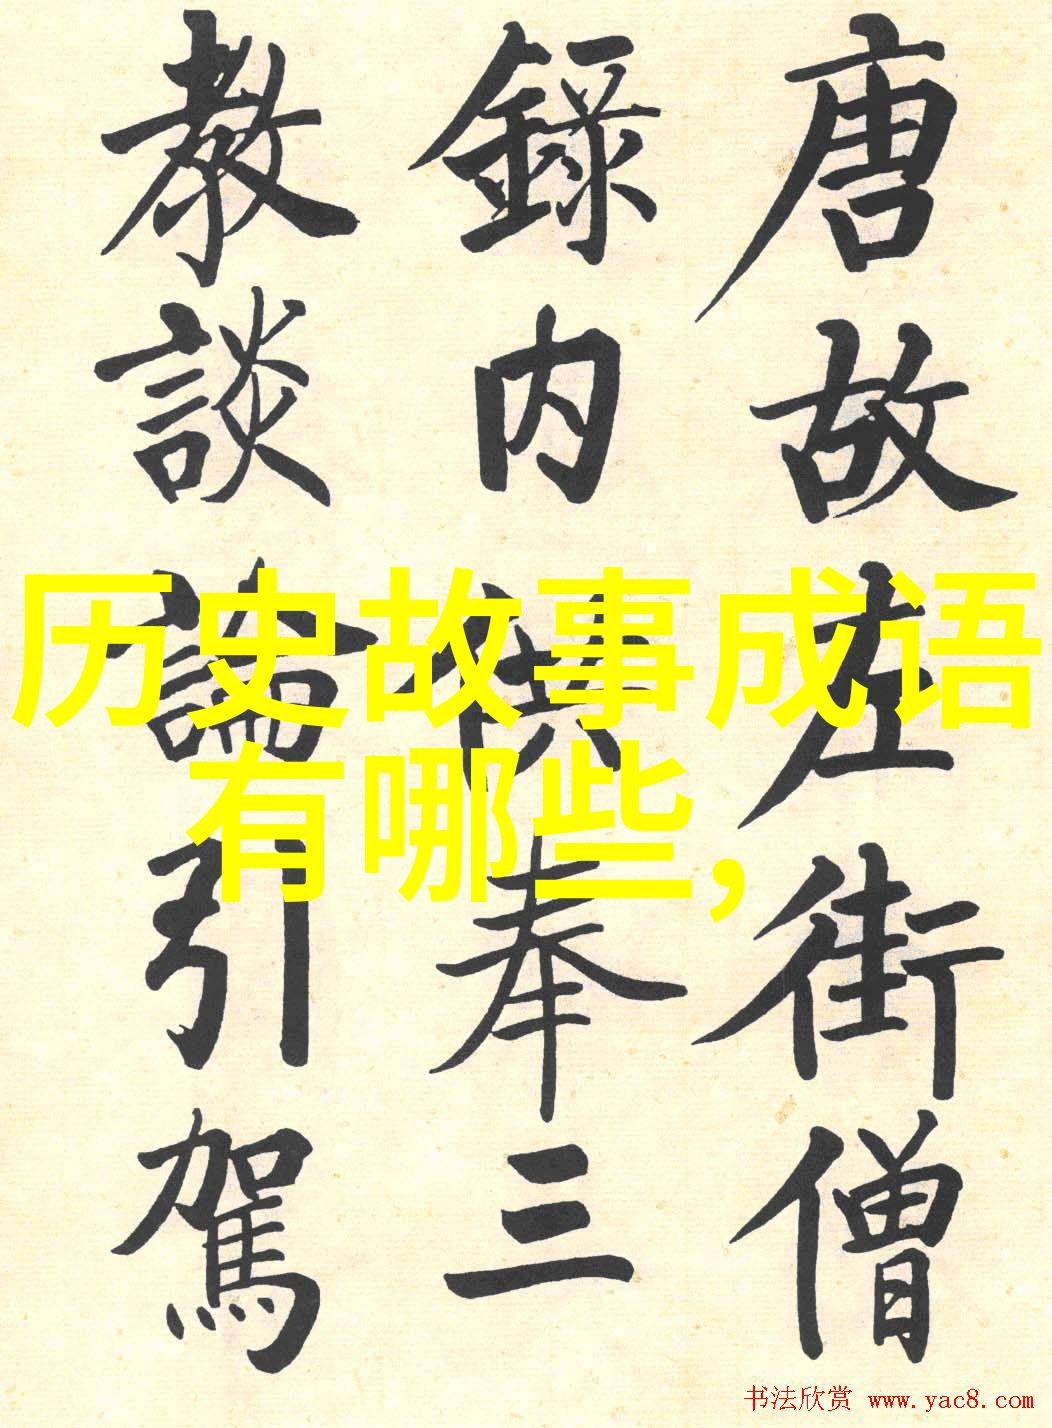 唐故左街僧
錄內供奉三
教談論引駕
历史故事成语
有哪些,
书法欣赏 www.yac8.com